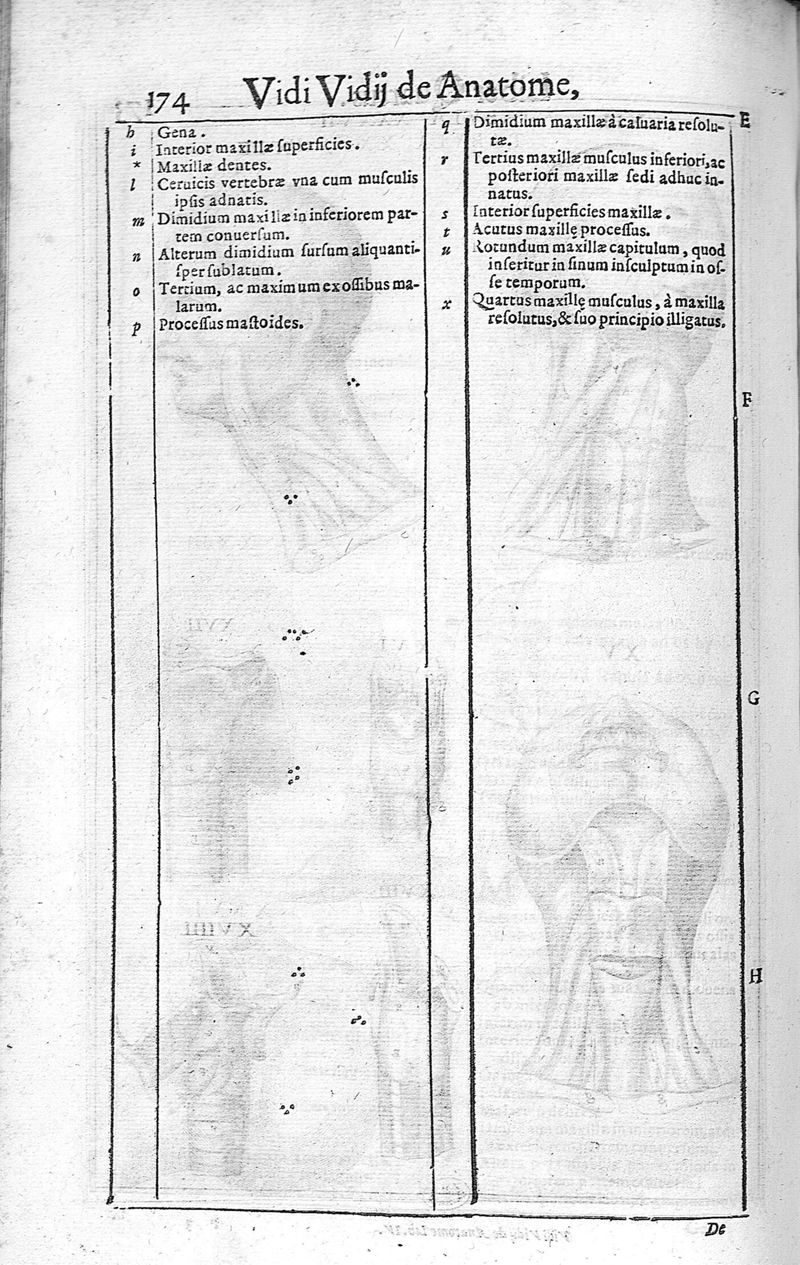 174 Vidi Vidij de Anatome,
h Gena.
i Interior maxillæ ſuperficies.
* Maxillæ dentes.
l Ceruicis vertebræ vna cum muſculis
ipſis adnatis.
m Dimidium maxillæ in inferiorem par-
tem conuerſum.
n Alterum dimidium ſurſum aliquanti-
ſper ſublatum.
o Tertium, ac maximum ex oſſibus ma-
larum.
p Proceſſus maſtoides.
q Dimidium maxillæ à caluaria reſolu-
tæ.
r Tertius maxillæ muſculus inferiori, ac
poſteriori maxillæ ſedi adhuc in-
natus.
s Interior ſuperficies maxillæ.
t Acutus maxillę proceſſus.
u Rotundum maxillæ capitulum, quod
inſeritur in ſinum inſculptum in oſ-
ſe temporum.
x Quartus maxillę muſculus, à maxilla
reſolutus, & ſuo principio illigatus.
E
F
G
H
De